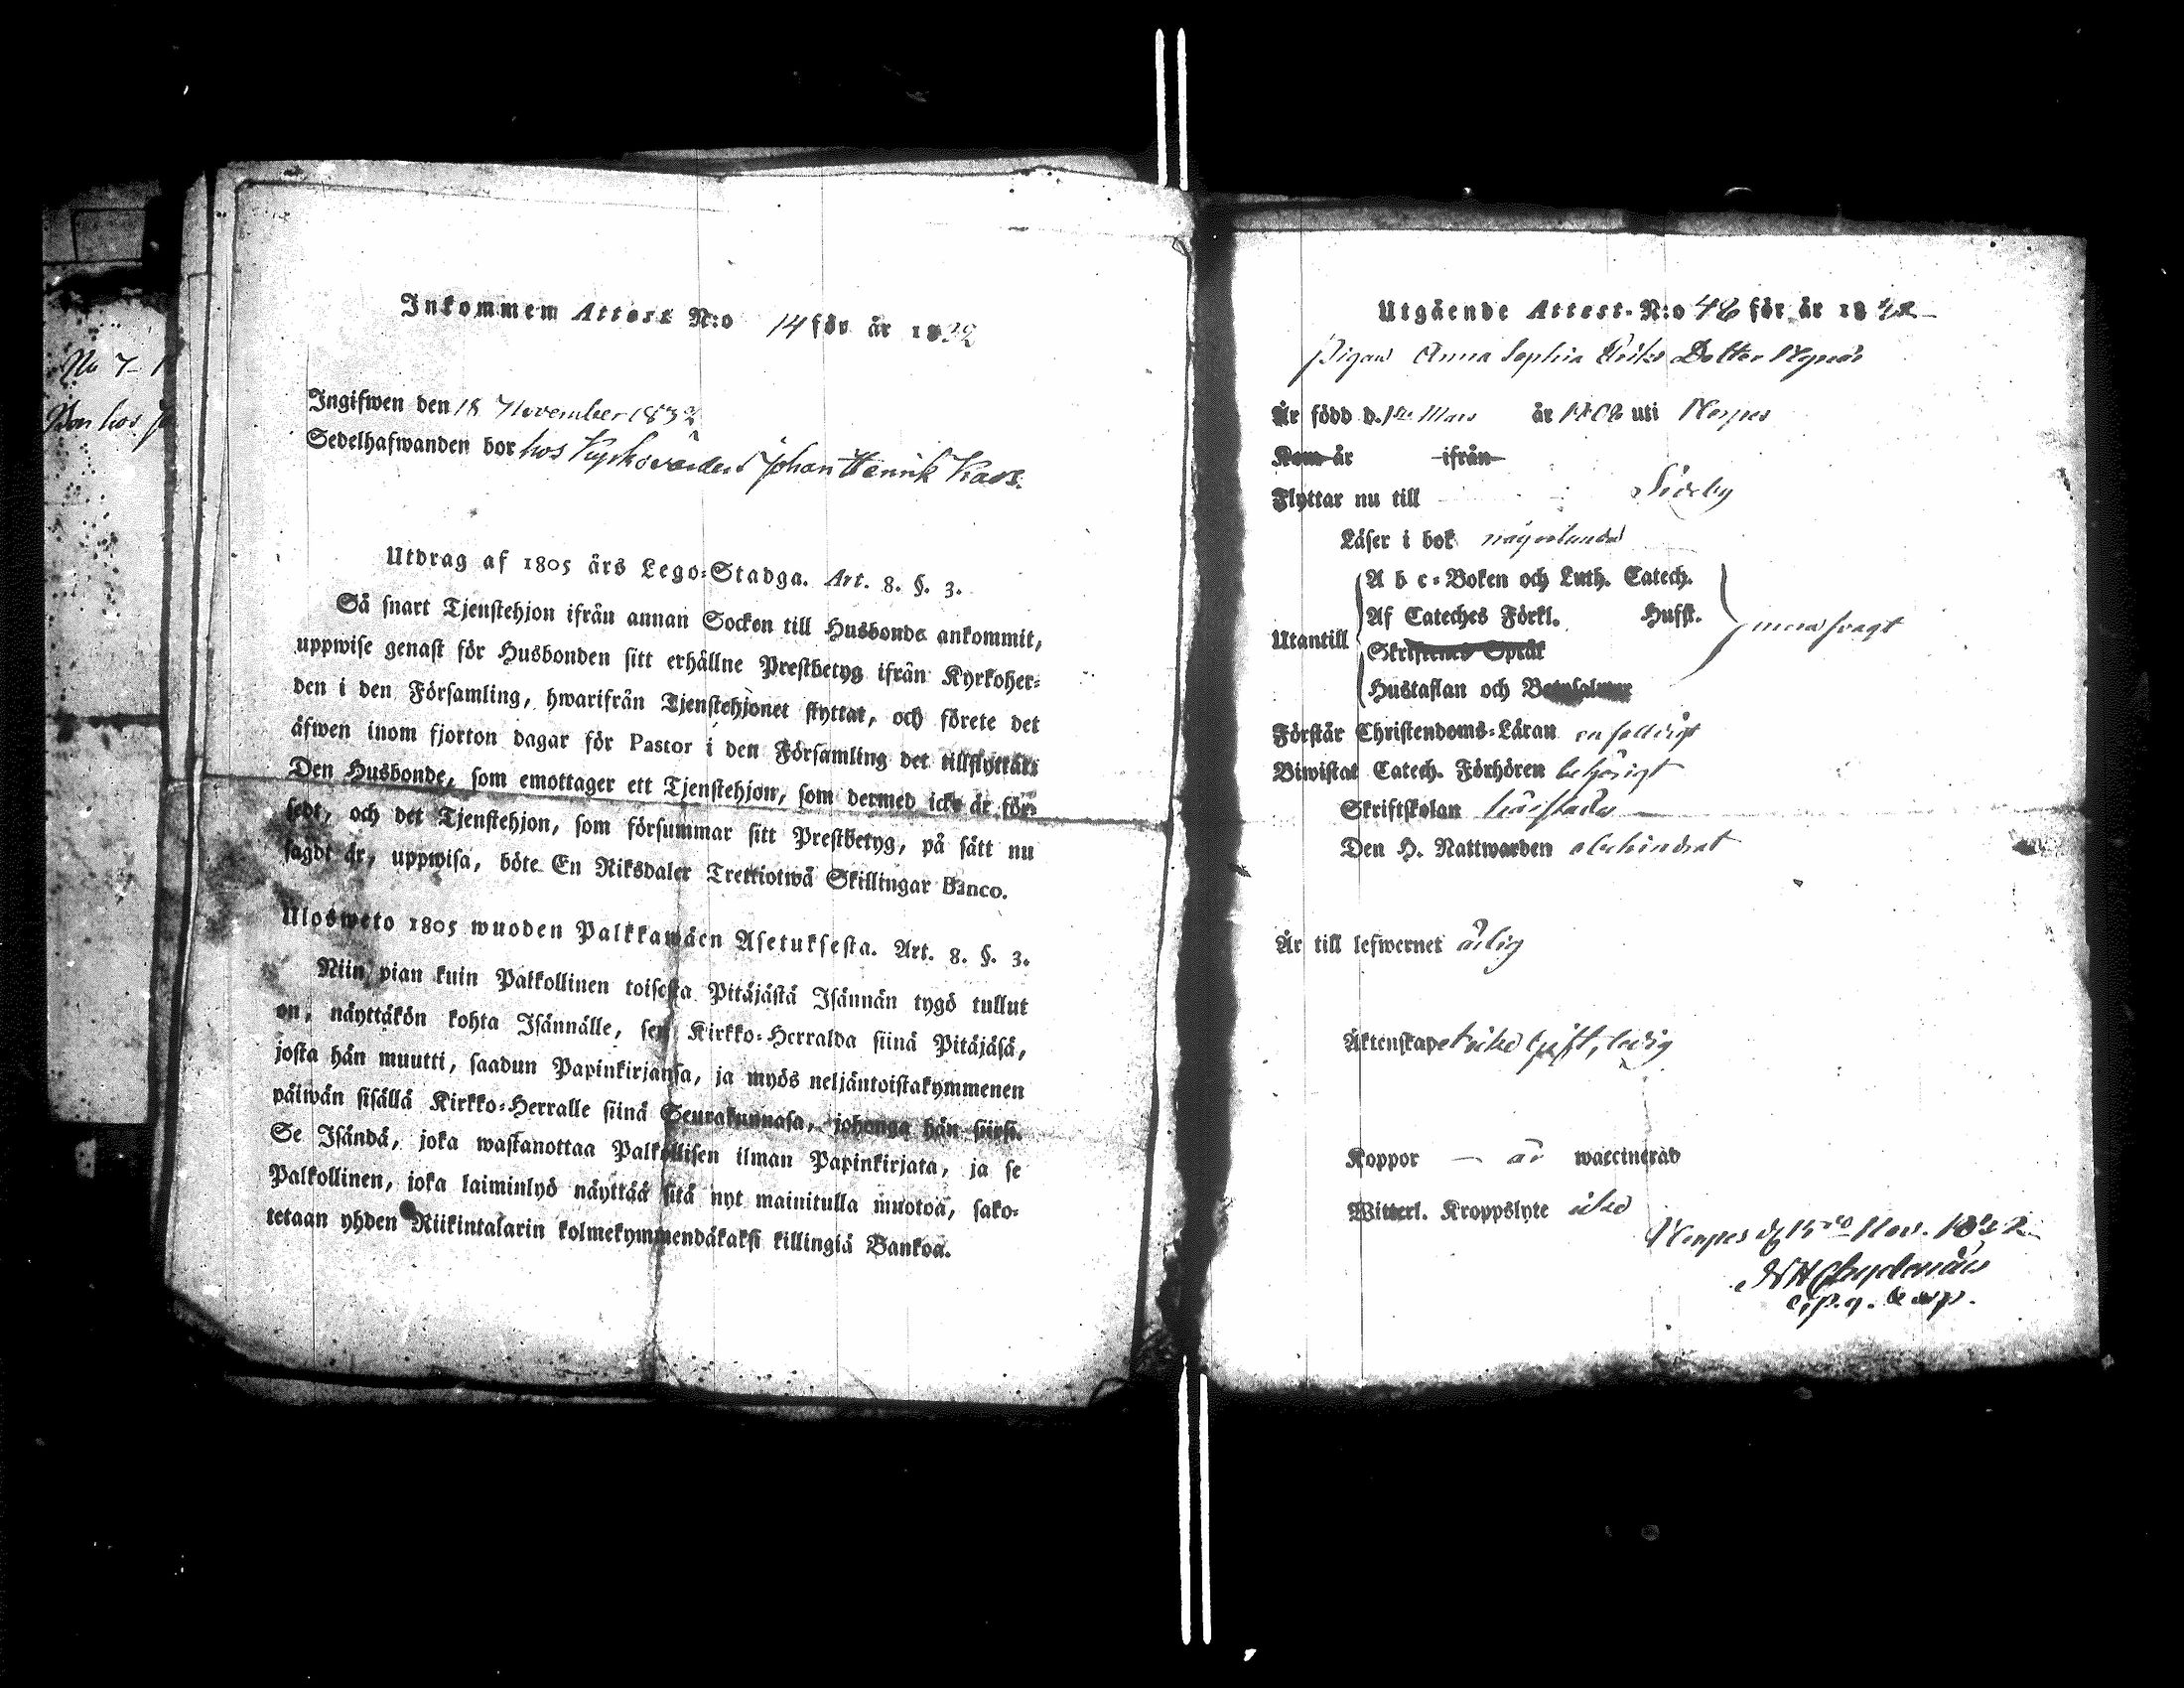 No 7-
Bor hos
Inkommen Attest N:o 14 för år 1832
Ingifwen den 18 November 1832
Sedelhafwanden bor hos Kyrkovärden Johan Henrik Klaos.
Utdrag af 1805 års Lego-Stadga. Art. 8. §. 3.
Så snart Tjenstehjon ifrån annan Socken till Husbonde ankommit,
uppwise genast för Husbonden sitt erhållne Prestbetyg ifrån Kyrkoher-
den i den Församling, hwarifrån Tjenstehjonet flyttat, och förete det
äfwen inom fjorton dagar för Pastor i den Församling det tillflyttar.
Den Husbonde, som emottager ett Tjenstehjon, som dermed icke är för-
sedt, och det Tjenstehjon, som försummar sitt Prestbetyg, på sätt nu
sagdt är, uppwisa, böte En Riksdaler Trettiotwå Skillingar Banco.
Ulosweto 1805 wuoden Palkkawäen Asetuksesta. Art. 8. §. 3.
Niin pian kuin Palkollinen toisesta Pitäjästä Isännän tygö tullut
on, näyttäkön kohta Isännälle, sen Kirkko-Herralda siinä Pitäjäsä,
josta hän muutti, saadun Papinkirjansa, ja myös neljäntoistakymmenen
päiwän sisällä Kirkko-Herralle siinä Seurakunnasa, johonga hän siirsi.
Se Isändä, joka wastanottaa Palkollisen ilman Papinkirjata, ja se
Palkollinen, joka laiminlyö näyttää sitä nyt mainitulla muotoa, sako-
tetaan yhden Riikintalarin kolmekymmendäkaksi killingiä Bankoa.
Utgående Attest-N:o 48 för år 1832
Pigan Anna Sophia Eriks Dotter
Är född d. 1 Mars år 1808 uti Nerpes
Kom år ifrån
Flyttar nu till Sideby
Läser i bok någorlunda
Utantill
A b c-Boken och Luth. Catech.
Af Cateches Förkl. Hufst.
Skriftenes Språk
Hustaflan och Botpsalmer
svagt
Förstår Christendoms-Läran enfalldigt
Biwistat Catech. Förhören behörigt
Skriftskolan härstädes
Den H. Nattwarden obehindrat
Är till lefwernet ärlig
Äktenskapet icke gift, ledig
Koppor — är waccinerad
Witterl. Kroppslyte icke
Nerpes d. 15 Nov. 1832